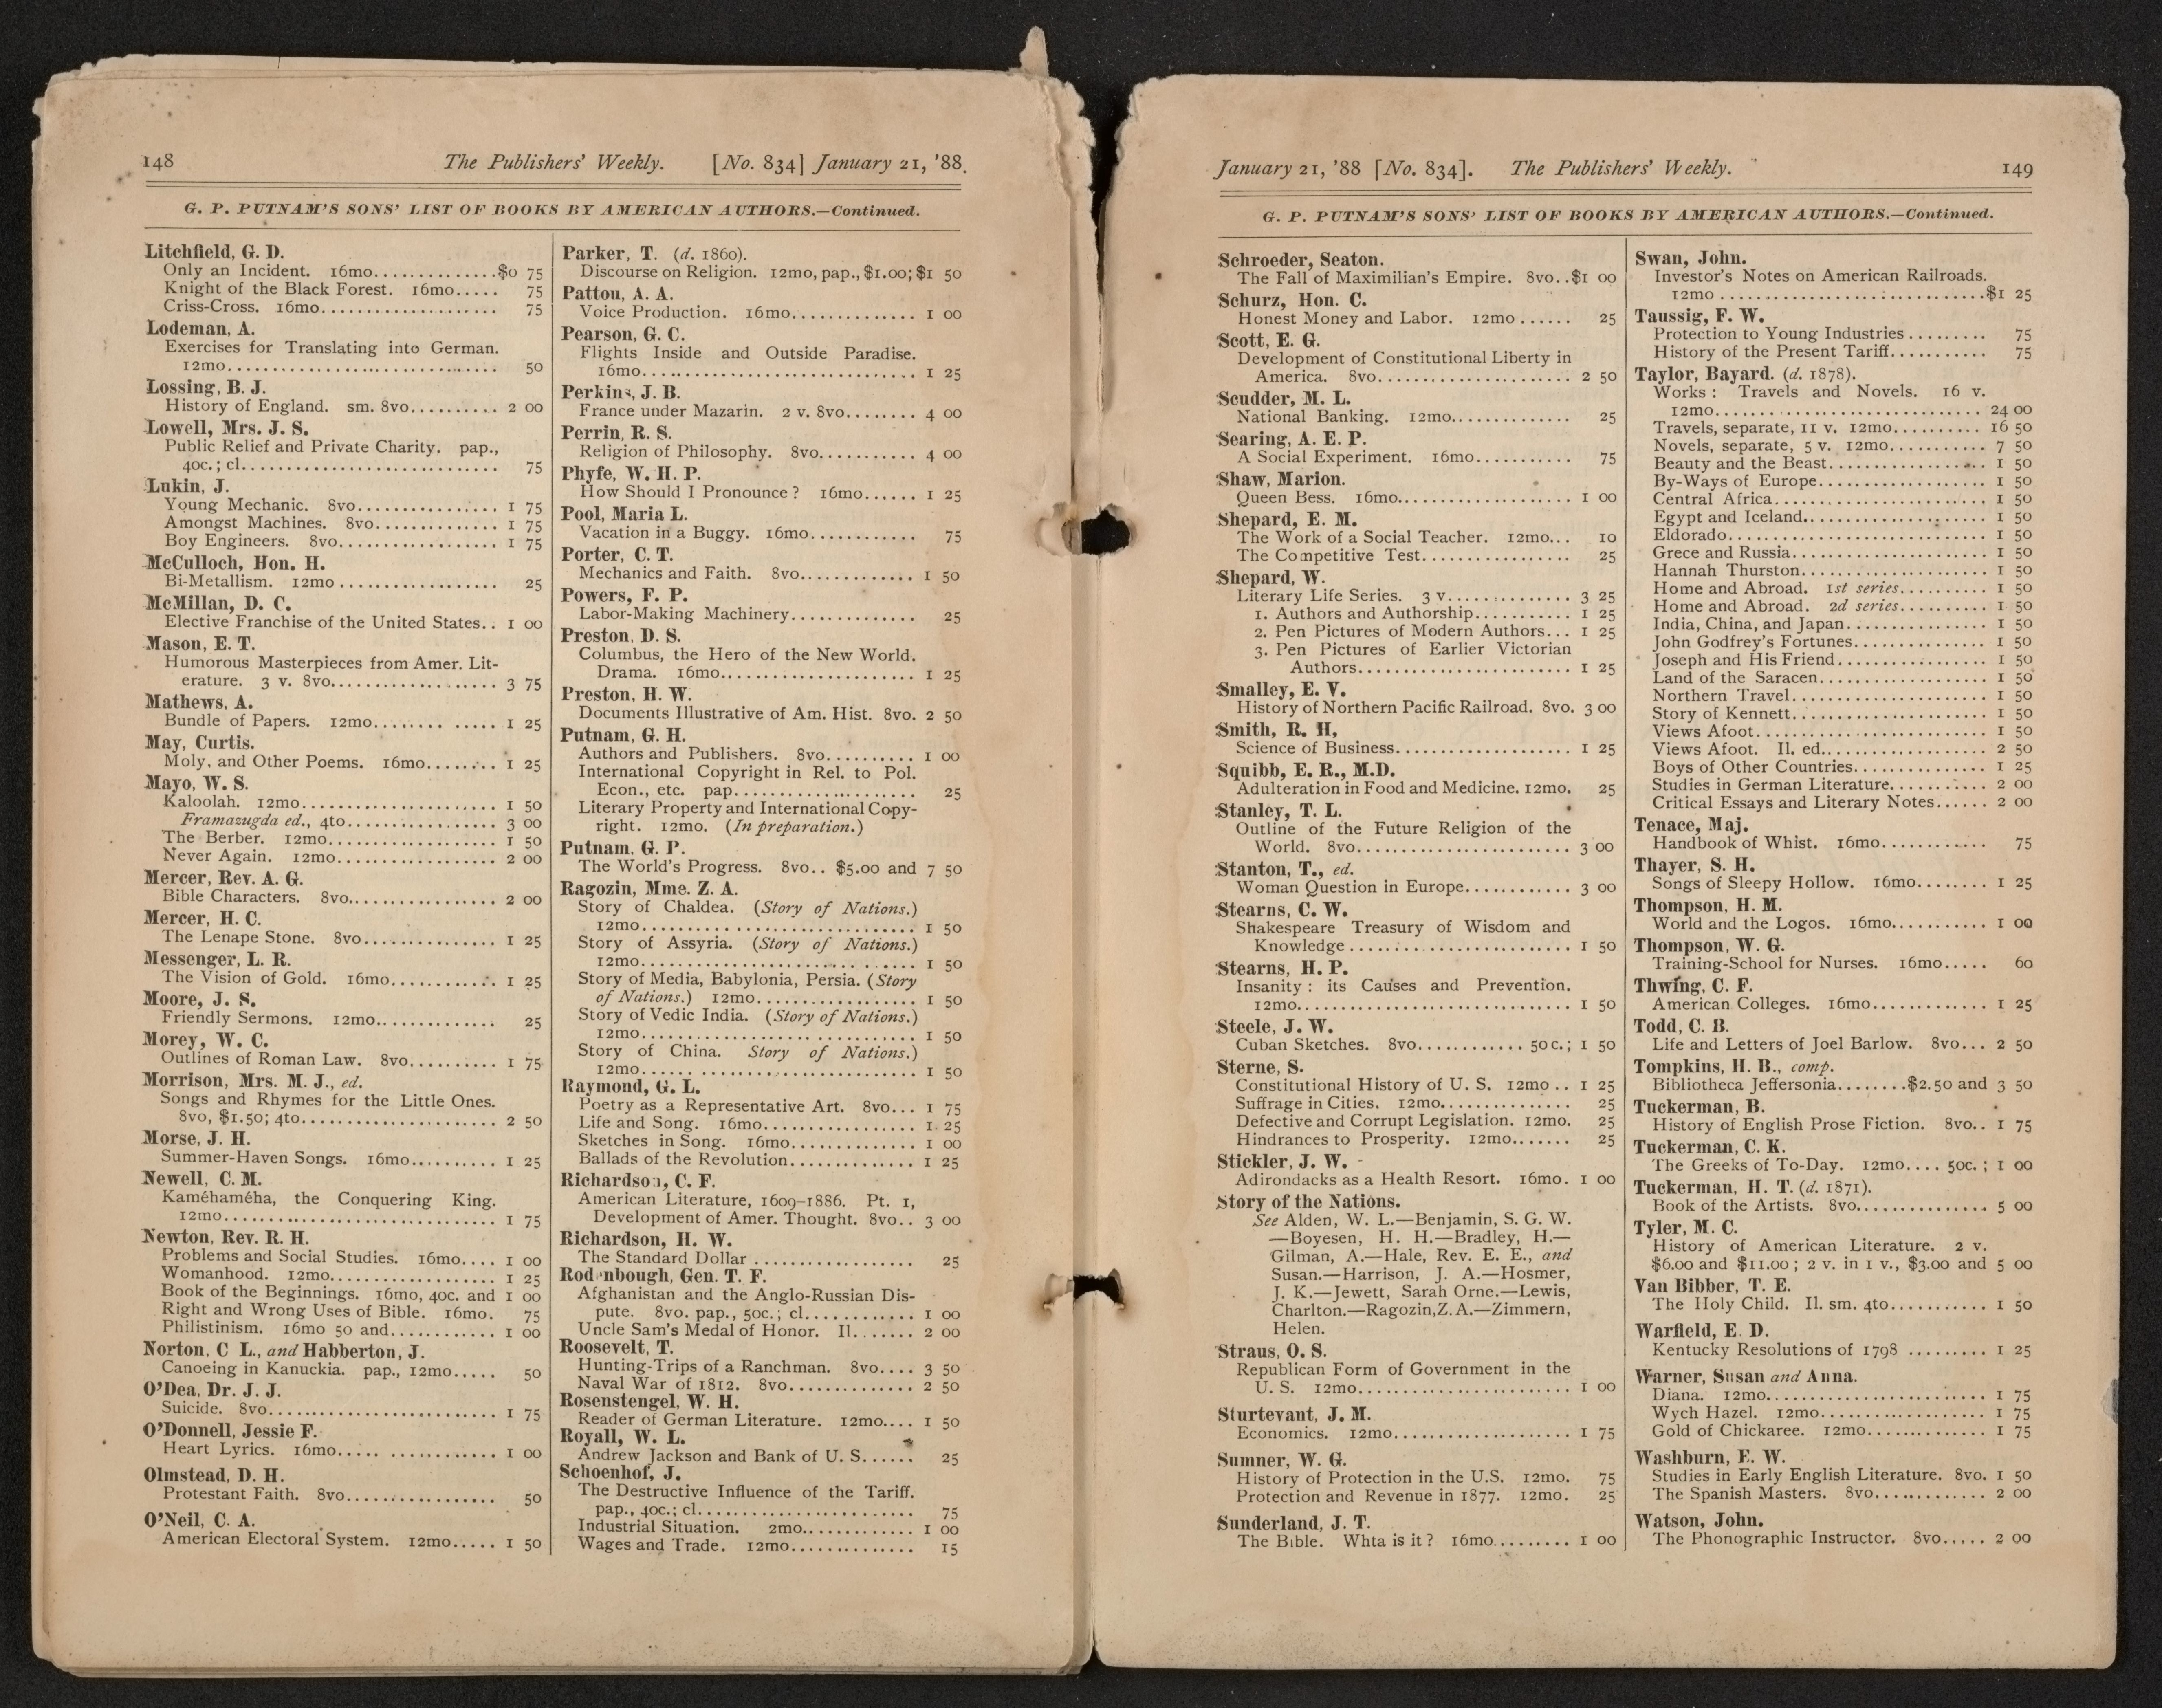 148 The Publishers' Weekly. [No. 834] January 21, '88.
G. P. PUTNAM'S SONS' LIST OF BOOKS BY AMERICAN AUTHORS.—Continued.
Litchfield, G. D.
Only an Incident. 16mo..............$0 75
Knight of the Black Forest. 16mo..... 75
Criss-Cross. 16mo.................... 75
Lodeman, A.
Exercises for Translating into German.
12mo.............................. 50
Lossing, B. J.
History of England. sm. 8vo.......... 2 00
Lowell, Mrs. J. S.
Public Relief and Private Charity. pap.,
40c.; cl............................ 75
Lukin, J.
Young Mechanic. 8vo................ 1 75
Amongst Machines. 8vo.............. 1 75
Boy Engineers. 8vo.................. 1 75
McCulloch, Hon. H.
Bi-Metallism. 12mo.................. 25
McMillan, D. C.
Elective Franchise of the United States.. 1 00
Mason, E. T.
Humorous Masterpieces from Amer. Lit-
erature. 3 v. 8vo................... 3 75
Mathews, A.
Bundle of Papers. 12mo........ ..... 1 25
May, Curtis.
Moly, and Other Poems. 16mo........ 1 25
Mayo, W. S.
Kaloolah. 12mo...................... 1 50
Framazugda ed., 4to................. 3 00
The Berber. 12mo................... 1 50
Never Again. 12mo.................. 2 00
Mercer, Rev. A. G.
Bible Characters. 8vo................ 2 00
Mercer, H. C.
The Lenape Stone. 8vo............... 1 25
Messenger, L. R.
The Vision of Gold. 16mo............ 1 25
Moore, J. S.
Friendly Sermons. 12mo............. 25
Morey, W. C.
Outlines of Roman Law. 8vo.......... 1 75
Morrison, Mrs. M. J., ed.
Songs and Rhymes for the Little Ones.
8vo, $1.50; 4to...................... 2 50
Morse, J. H.
Summer-Haven Songs. 16mo.......... 1 25
Newell, C. M.
Kaméhaméha, the Conquering King.
12mo............................... 1 75
Newton, Rev. R. H.
Problems and Social Studies. 16mo.... 1 00
Womanhood. 12mo................... 1 25
Book of the Beginnings. 16mo, 40c. and 1 00
Right and Wrong Uses of Bible. 16mo. 75
Philistinism. 16mo 50 and............ 1 00
Norton, C L., and Habberton, J.
Canoeing in Kanuckia. pap., 12mo..... 50
O'Dea, Dr. J. J.
Suicide. 8vo......................... 1 75
O'Donnell, Jessie F.
Heart Lyrics. 16mo..... ............. 1 00
Olmstead, D. H.
Protestant Faith. 8vo................. 50
O'Neil, C. A.
American Electoral System. 12mo..... 1 50
Parker, T. (d. 1860).
Discourse on Religion. 12mo, pap., $1.00; $1 50
Pattou, A. A.
Voice Production. 16mo.............. 1 00
Pearson, G. C.
Flights Inside and Outside Paradise.
16mo............................... 1 25
Perkins, J. B.
France under Mazarin. 2 v. 8vo........ 4 00
Perrin, R. S.
Religion of Philosophy. 8vo........... 4 00
Phyfe, W. H. P.
How Should I Pronounce? 16mo...... 1 25
Pool, Maria L.
Vacation in a Buggy. 16mo............ 75
Porter, C. T.
Mechanics and Faith. 8vo............. 1 50
Powers, F. P.
Labor-Making Machinery.............. 25
Preston, D. S.
Columbus, the Hero of the New World.
Drama. 16mo...................... 1 25
Preston, H. W.
Documents Illustrative of Am. Hist. 8vo. 2 50
Putnam, G. H.
Authors and Publishers. 8vo.......... 1 00
International Copyright in Rel. to Pol.
Econ., etc. pap..................... 25
Literary Property and International Copy-
right. 12mo. (In preparation.)
Putnam, G. P.
The World's Progress. 8vo.. $5.00 and 7 50
Ragozin, Mme. Z. A.
Story of Chaldea. (Story of Nations.)
12mo............................... 1 50
Story of Assyria. (Story of Nations.)
12mo............................... 1 50
Story of Media, Babylonia, Persia. (Story
of Nations.) 12mo.................. 1 50
Story of Vedic India. (Story of Nations.)
12mo............................... 1 50
Story of China. Story of Nations.)
12mo.... .......................... 1 50
Raymond, G. L.
Poetry as a Representative Art. 8vo... 1 75
Life and Song. 16mo................. 1 25
Sketches in Song. 16mo.............. 1 00
Ballads of the Revolution.............. 1 25
Richardson, C. F.
American Literature, 1609–1886. Pt. 1,
Development of Amer. Thought. 8vo.. 3 00
Richardson, H. W.
The Standard Dollar .................. 25
Rodenbough, Gen. T. F.
Afghanistan and the Anglo-Russian Dis-
pute. 8vo. pap., 50c.; cl............ 1 00
Uncle Sam's Medal of Honor. Il....... 2 00
Roosevelt, T.
Hunting-Trips of a Ranchman. 8vo.... 3 50
Naval War of 1812. 8vo.............. 2 50
Rosenstengel, W. H.
Reader of German Literature. 12mo.... 1 50
Royall, W. L.
Andrew Jackson and Bank of U. S...... 25
Schoenhof, J.
The Destructive Influence of the Tariff.
pap., 40c.; cl........................ 75
Industrial Situation. 2mo............ 1 00
Wages and Trade. 12mo.............. 15
January 21, '88 [No. 834]. The Publishers' Weekly. 149
G. P. PUTNAM'S SONS' LIST OF BOOKS BY AMERICAN AUTHORS.—Continued.
Schroeder, Seaton.
The Fall of Maximilian's Empire. 8vo..$1 00
Schurz, Hon. C.
Honest Money and Labor. 12mo...... 25
Scott, E. G.
Development of Constitutional Liberty in
America. 8vo...................... 2 50
Scudder, M. L.
National Banking. 12mo.............. 25
Searing, A. E. P.
A Social Experiment. 16mo........... 75
Shaw, Marion.
Queen Bess. 16mo................... 1 00
Shepard, E. M.
The Work of a Social Teacher. 12mo... 10
The Competitive Test................. 25
Shepard, W.
Literary Life Series. 3 v.............. 3 25
1. Authors and Authorship........... 1 25
2. Pen Pictures of Modern Authors... 1 25
3. Pen Pictures of Earlier Victorian
Authors........................ 1 25
Smalley, E. V.
History of Northern Pacific Railroad. 8vo. 3 00
Smith, R. H,
Science of Business................... 1 25
Squibb, E. R., M.D.
Adulteration in Food and Medicine. 12mo. 25
Stanley, T. L.
Outline of the Future Religion of the
World. 8vo........................ 3 00
Stanton, T., ed.
Woman Question in Europe............ 3 00
Stearns, C. W.
Shakespeare Treasury of Wisdom and
Knowledge ......................... 1 50
Stearns, H. P.
Insanity: its Causes and Prevention.
12mo............................... 1 50
Steele, J. W.
Cuban Sketches. 8vo............ 50c.; 1 50
Sterne, S.
Constitutional History of U. S. 12mo.. 1 25
Suffrage in Cities. 12mo............... 25
Defective and Corrupt Legislation. 12mo. 25
Hindrances to Prosperity. 12mo....... 25
Stickler, J. W.
Adirondacks as a Health Resort. 16mo. 1 00
Story of the Nations.
See Alden, W. L.—Benjamin, S. G. W.
—Boyesen, H. H.—Bradley, H.—
Gilman, A.—Hale, Rev. E. E., and
Susan.—Harrison, J. A.—Hosmer,
J. K.—Jewett, Sarah Orne.—Lewis,
Charlton.—Ragozin, Z. A.—Zimmern,
Helen.
Straus, O. S.
Republican Form of Government in the
U. S. 12mo........................ 1 00
Sturtevant, J. M.
Economics. 12mo.................... 1 75
Sumner, W. G.
History of Protection in the U.S. 12mo. 75
Protection and Revenue in 1877. 12mo. 25
Sunderland, J. T.
The Bible. Whta is it? 16mo......... 1 00
Swan, John.
Investor's Notes on American Railroads.
12mo..............................$1 25
Taussig, F. W.
Protection to Young Industries......... 75
History of the Present Tariff........... 75
Taylor, Bayard. (d. 1878).
Works: Travels and Novels. 16 v.
12mo.............................. 24 00
Travels, separate, 11 v. 12mo.......... 16 50
Novels, separate, 5 v. 12mo........... 7 50
Beauty and the Beast.................. 1 50
By-Ways of Europe................... 1 50
Central Africa........................ 1 50
Egypt and Iceland.................... 1 50
Eldorado............................. 1 50
Grece and Russia..................... 1 50
Hannah Thurston..................... 1 50
Home and Abroad. 1st series.......... 1 50
Home and Abroad. 2d series.......... 1 50
India, China, and Japan............... 1 50
John Godfrey's Fortunes............... 1 50
Joseph and His Friend................. 1 50
Land of the Saracen................... 1 50
Northern Travel...................... 1 50
Story of Kennett...................... 1 50
Views Afoot.......................... 1 50
Views Afoot. Il. ed................... 2 50
Boys of Other Countries............... 1 25
Studies in German Literature........... 2 00
Critical Essays and Literary Notes...... 2 00
Tenace, Maj.
Handbook of Whist. 16mo............ 75
Thayer, S. H.
Songs of Sleepy Hollow. 16mo........ 1 25
Thompson, H. M.
World and the Logos. 16mo........... 1 00
Thompson, W. G.
Training-School for Nurses. 16mo..... 60
Thwing, C. F.
American Colleges. 16mo............. 1 25
Todd, C. B.
Life and Letters of Joel Barlow. 8vo... 2 50
Tompkins, H. B., comp.
Bibliotheca Jeffersonia........$2.50 and 3 50
Tuckerman, B.
History of English Prose Fiction. 8vo.. 1 75
Tuckerman, C. K.
The Greeks of To-Day. 12mo.... 50c.; 1 00
Tuckerman, H. T. (d. 1871).
Book of the Artists. 8vo............... 5 00
Tyler, M. C.
History of American Literature. 2 v.
$6.00 and $11.00; 2 v. in 1 v., $3.00 and 5 00
Van Bibber, T. E.
The Holy Child. Il. sm. 4to........... 1 50
Warfield, E. D.
Kentucky Resolutions of 1798 ......... 1 25
Warner, Susan and Anna.
Diana. 12mo........................ 1 75
Wych Hazel. 12mo.................. 1 75
Gold of Chickaree. 12mo............. 1 75
Washburn, E. W.
Studies in Early English Literature. 8vo. 1 50
The Spanish Masters. 8vo............. 2 00
Watson, John.
The Phonographic Instructor. 8vo..... 2 00